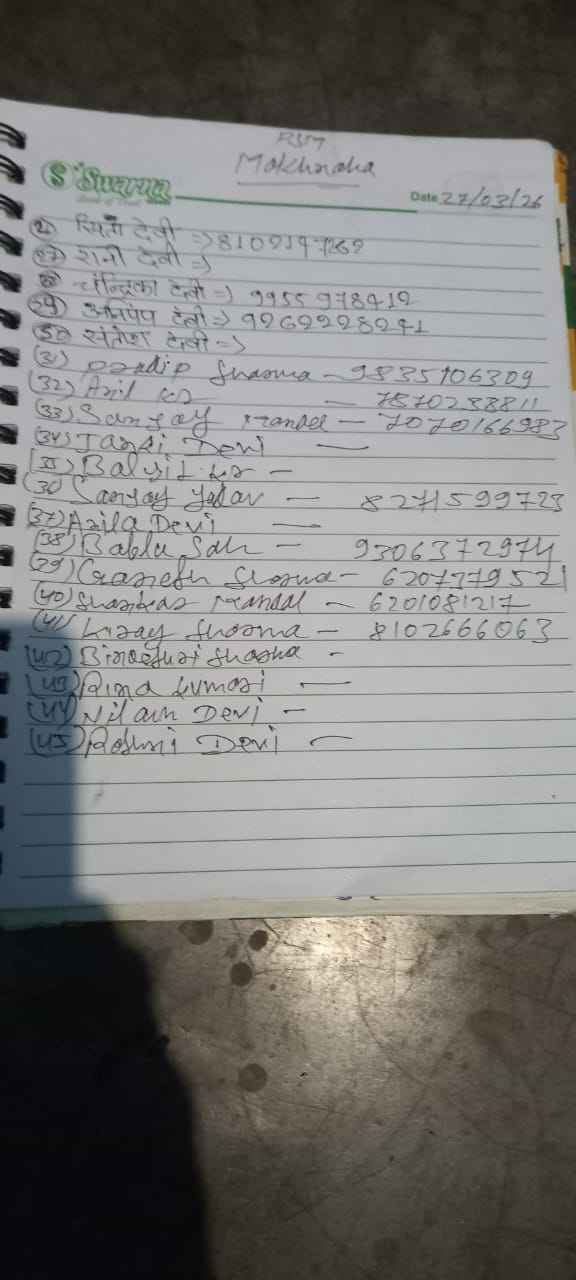 RSM
Makhnaha
S Swarna
Date 27/03/26
सिता देवी => 8109197269
(27) रानी देवी =>
चन्द्रिका देवी => 9955978412
(29) देवी => 9262228241
(30) संतोषा देवी =>
(31) Pradip Sharma - 9835106309
(32) Anil kr - 7570238811
(33) Sanjay Mandal - 7070166983
(34) Devi -
(35) Baljit kr -
(36) Sanjay Yadav - 8271599723
(37) Anila Devi -
(38) Bablu Sah - 9306372974
(39) Ganesh Sharma - 6207779521
(40) Shankar Mandal - 6201081217
(41) Sharma - 8102666063
(42) Sharma -
(43) Rina kumari -
(44) Nilam Devi -
(45) Roshni Devi -